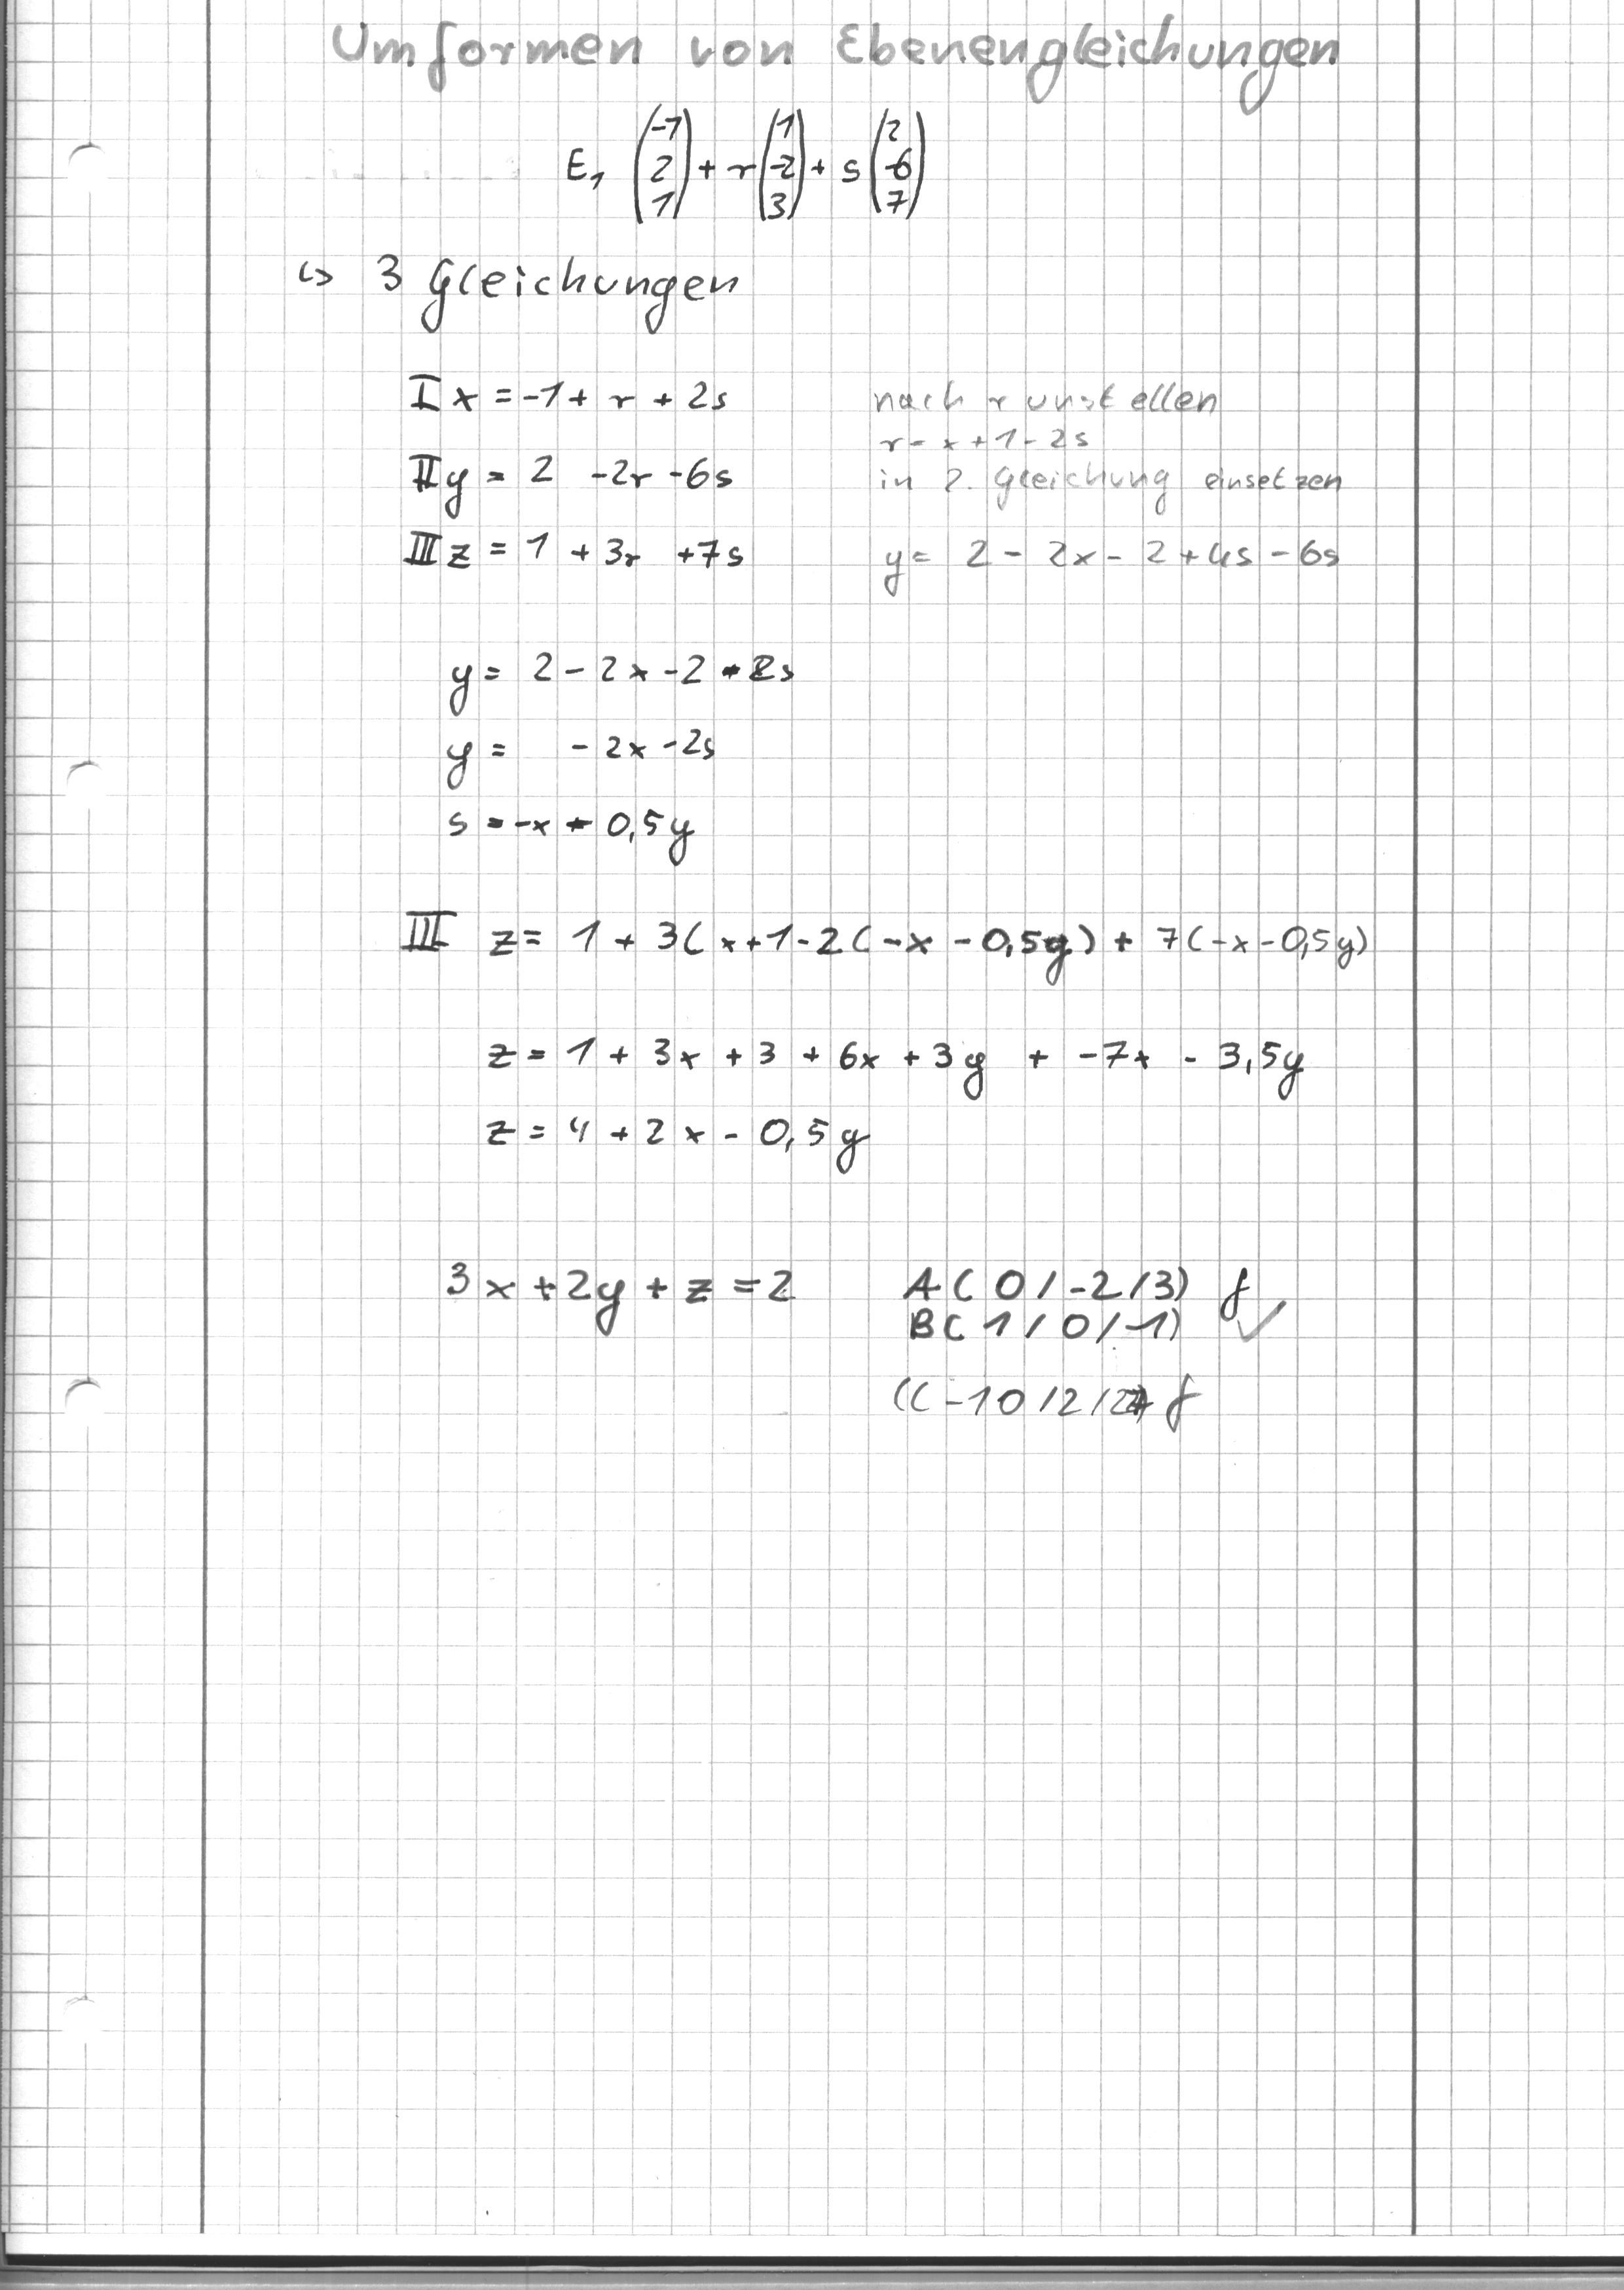 Umformen von Ebenengleichungen
E₁ (-1 2 1) + r (1 -2 3) + s (2 -6 7)
↪ 3 Gleichungen
I x = -1 + r + 2s nach r umstellen
r = x + 1 - 2s
II y = 2 - 2r - 6s in 2. Gleichung einsetzen
III z = 1 + 3r + 7s y = 2 - 2x - 2 + 4s - 6s
y = 2 - 2x - 2 - 2s
y = - 2x - 2s
s = -x - 0,5y
III z = 1 + 3(x + 1 - 2(-x - 0,5y) + 7(-x - 0,5y)
z = 1 + 3x + 3 + 6x + 3y + -7x - 3,5y
z = 4 + 2x - 0,5y
3x + 2y + z = 2 A(0/-2/3) f
B(1/0/-1) ✓
C(-10/2/ f